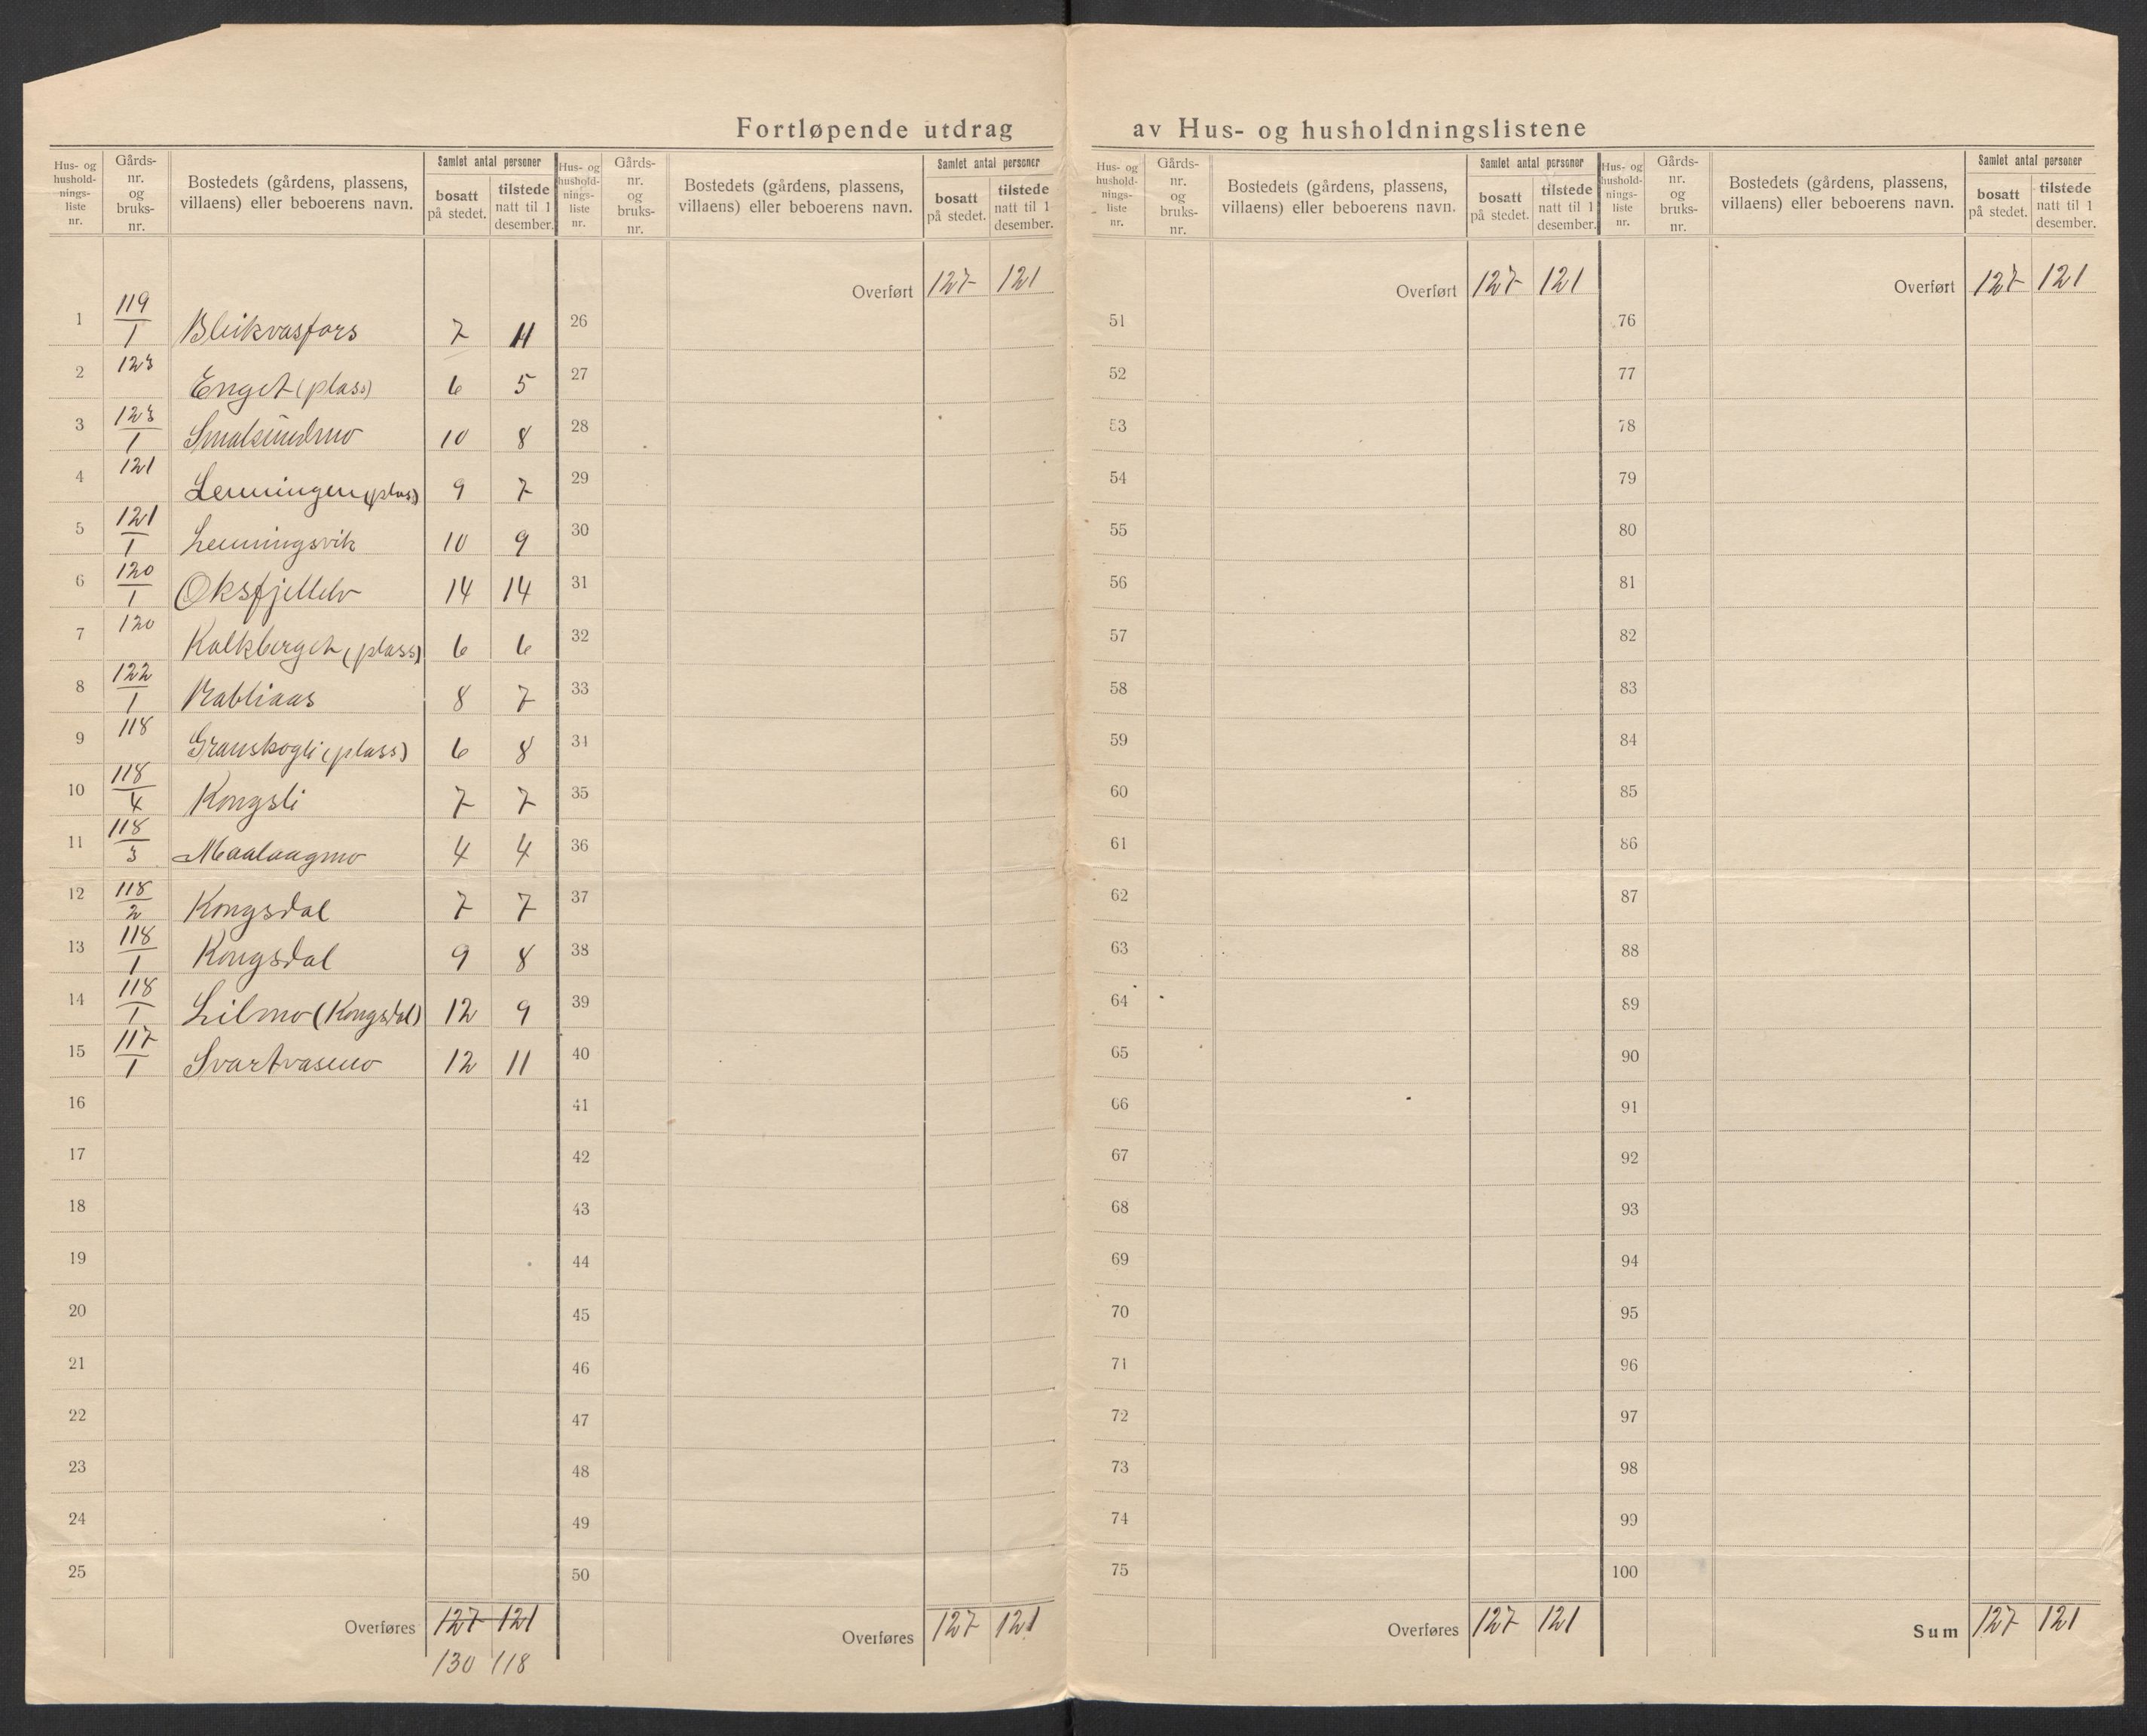 Fortløpende utdrag av Hus- og husholdningslistene
Hus- og hushold- nings- liste nr. | Gårds- nr. og bruks- nr. | Bostedets (gårdens, plassens, villaens) eller beboerens navn. | Samlet antal personer | bosatt på stedet. | tilstede natt til 1 desember.
1 119/1 Bleikvasfors 7 11
2 123 Enget (plass) 6 5
3 123/1 Smalsundmo 10 8
4 121 Lenningen (plass) 9 7
5 121/1 Lenningsvik 10 9
6 120/1 Oksfjellelv 14 14
7 120 Kalkberget (plass) 6 6
8 122/1 Rabliaas 8 7
9 118 Granskogli (plass) 6 8
10 118/4 Kongsli 7 7
11 118/3 Maalaagmo 4 4
12 118/2 Kongsdal 7 7
13 118/1 Kongsdal 9 8
14 118/1 Lilmo (Kongsdal) 12 9
15 117/1 Svartvasmo 12 11
16
17
18
19
20
21
22
23
24
25
Overføres 127 121
130 118
Hus- og hushold- nings- liste nr. | Gårds- nr. og bruks- nr. | Bostedets (gårdens, plassens, villaens) eller beboerens navn. | Samlet antal personer | bosatt på stedet. | tilstede natt til 1 desember.
Overført 127 121
26
27
28
29
30
31
32
33
34
35
36
37
38
39
40
41
42
43
44
45
46
47
48
49
50
Overføres 127 121
Hus- og hushold- nings- liste nr. | Gårds- nr. og bruks- nr. | Bostedets (gårdens, plassens, villaens) eller beboerens navn. | Samlet antal personer | bosatt på stedet. | tilstede natt til 1 desember.
Overført 127 121
51
52
53
54
55
56
57
58
59
60
61
62
63
64
65
66
67
68
69
70
71
72
73
74
75
Overføres 127 121
Hus- og hushold- nings- liste nr. | Gårds- nr. og bruks- nr. | Bostedets (gårdens, plassens, villaens) eller beboerens navn. | Samlet antal personer | bosatt på stedet. | tilstede natt til 1 desember.
Overført 127 121
76
77
78
79
80
81
82
83
84
85
86
87
88
89
90
91
92
93
94
95
96
97
98
99
100
Sum 127 121